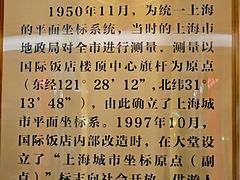 1950年11月，为统一上海
的平面坐标系统，当时的上海市
地政局对全市进行测量，测量以
国际饭店楼顶中心旗杆为原点
（东经121°28′12″，北纬31°
13′48″），由此确立了上海城
市平面坐标系。1997年10月，
国际饭店内部改造时，在大堂设
立了“上海城市坐标原点（副
点）”标志向社会开放，供游人